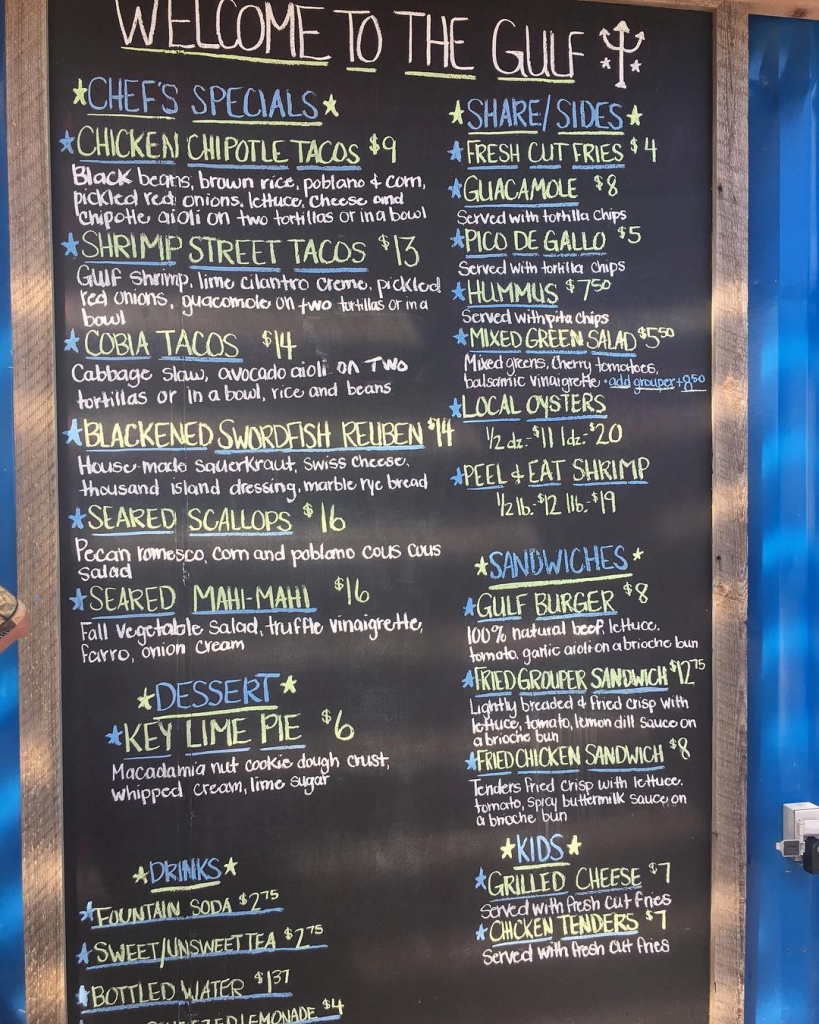 WELCOME TO THE GULF
CHEF'S SPECIALS
CHICKEN CHIPOTLE TACOS $9
Black beans, brown rice, poblano & corn,
pickled red onions, lettuce, cheese and
chipotle aioli on two tortillas or in a bowl
SHRIMP STREET TACOS $13
Gulf shrimp, lime cilantro creme, pickled
red onions, guacomole on two tortillas or in a
bowl
COBIA TACOS $14
Cabbage slaw, avocado aioli on two
tortillas or in a bowl, rice and beans
BLACKENED SWORDFISH REUBEN $14
House-made sauerkraut, swiss cheese,
thousand island dressing, marble rye bread
SEARED SCALLOPS $16
Pecan romesco, corn and poblano cous cous
salad
SEARED MAHI-MAHI $16
Fall vegetable salad, truffle vinaigrette,
farro, onion cream
DESSERT
KEY LIME PIE $6
Macadamia nut cookie dough crust,
whipped cream, lime sugar
DRINKS
FOUNTAIN SODA $2.75
SWEET/UNSWEET TEA $2.75
BOTTLED WATER $1.37
LEMONADE $4
SHARE/SIDES
FRESH CUT FRIES $4
GUACAMOLE $8
Served with tortilla chips
PICO DE GALLO $5
Served with tortilla chips
HUMMUS $7.50
Served with pita chips
MIXED GREEN SALAD $5.50
Mixed greens, cherry tomatoes,
balsamic vinaigrette • add grouper +8.50
LOCAL OYSTERS
1/2 dz.-$11 1dz-$20
PEEL & EAT SHRIMP
1/2 lb.-$12 1lb.-$19
SANDWICHES
GULF BURGER $8
100% natural beef, lettuce,
tomato, garlic aioli on a brioche bun
FRIED GROUPER SANDWICH $12.75
Lightly breaded & fried crisp with
lettuce, tomato, lemon dill sauce on
a brioche bun
FRIED CHICKEN SANDWICH $8
Tenders fried crisp with lettuce,
tomato, spicy buttermilk sauce on
a brioche bun
KIDS
GRILLED CHEESE $7
Served with fresh cut fries
CHICKEN TENDERS $7
Served with fresh cut fries